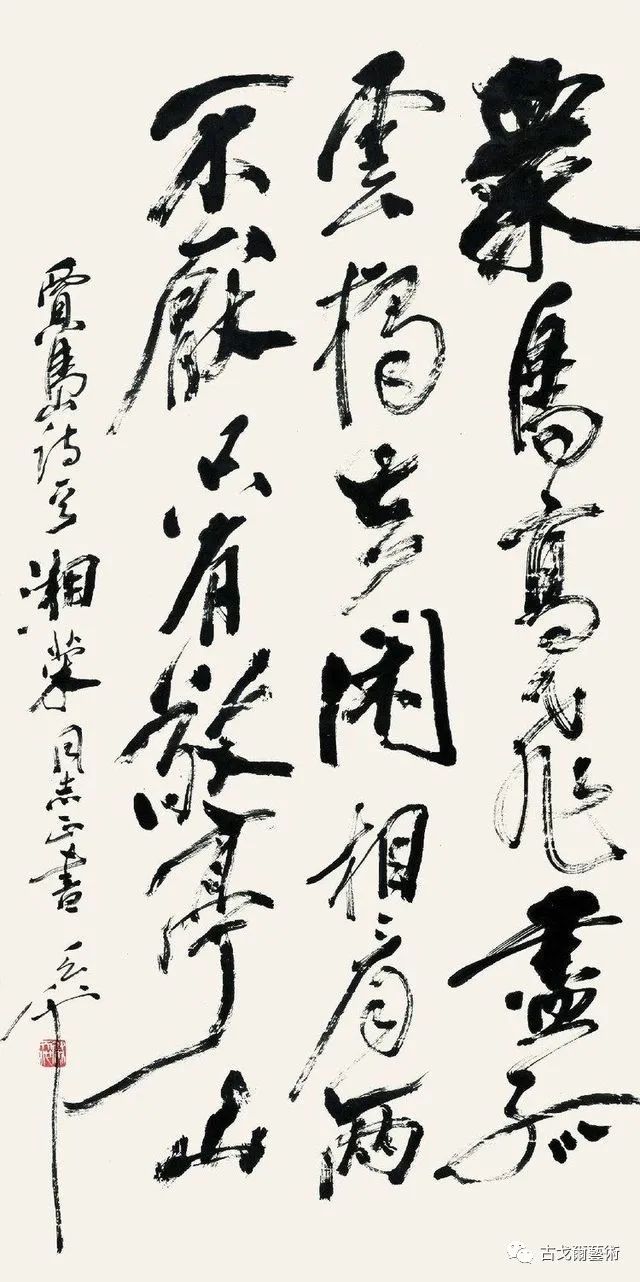 衆鳥高飛盡孤
雲獨去閑相看兩
不厭只有敬亭山
賈島詩 湘榮同志正書
古戈爾藝術